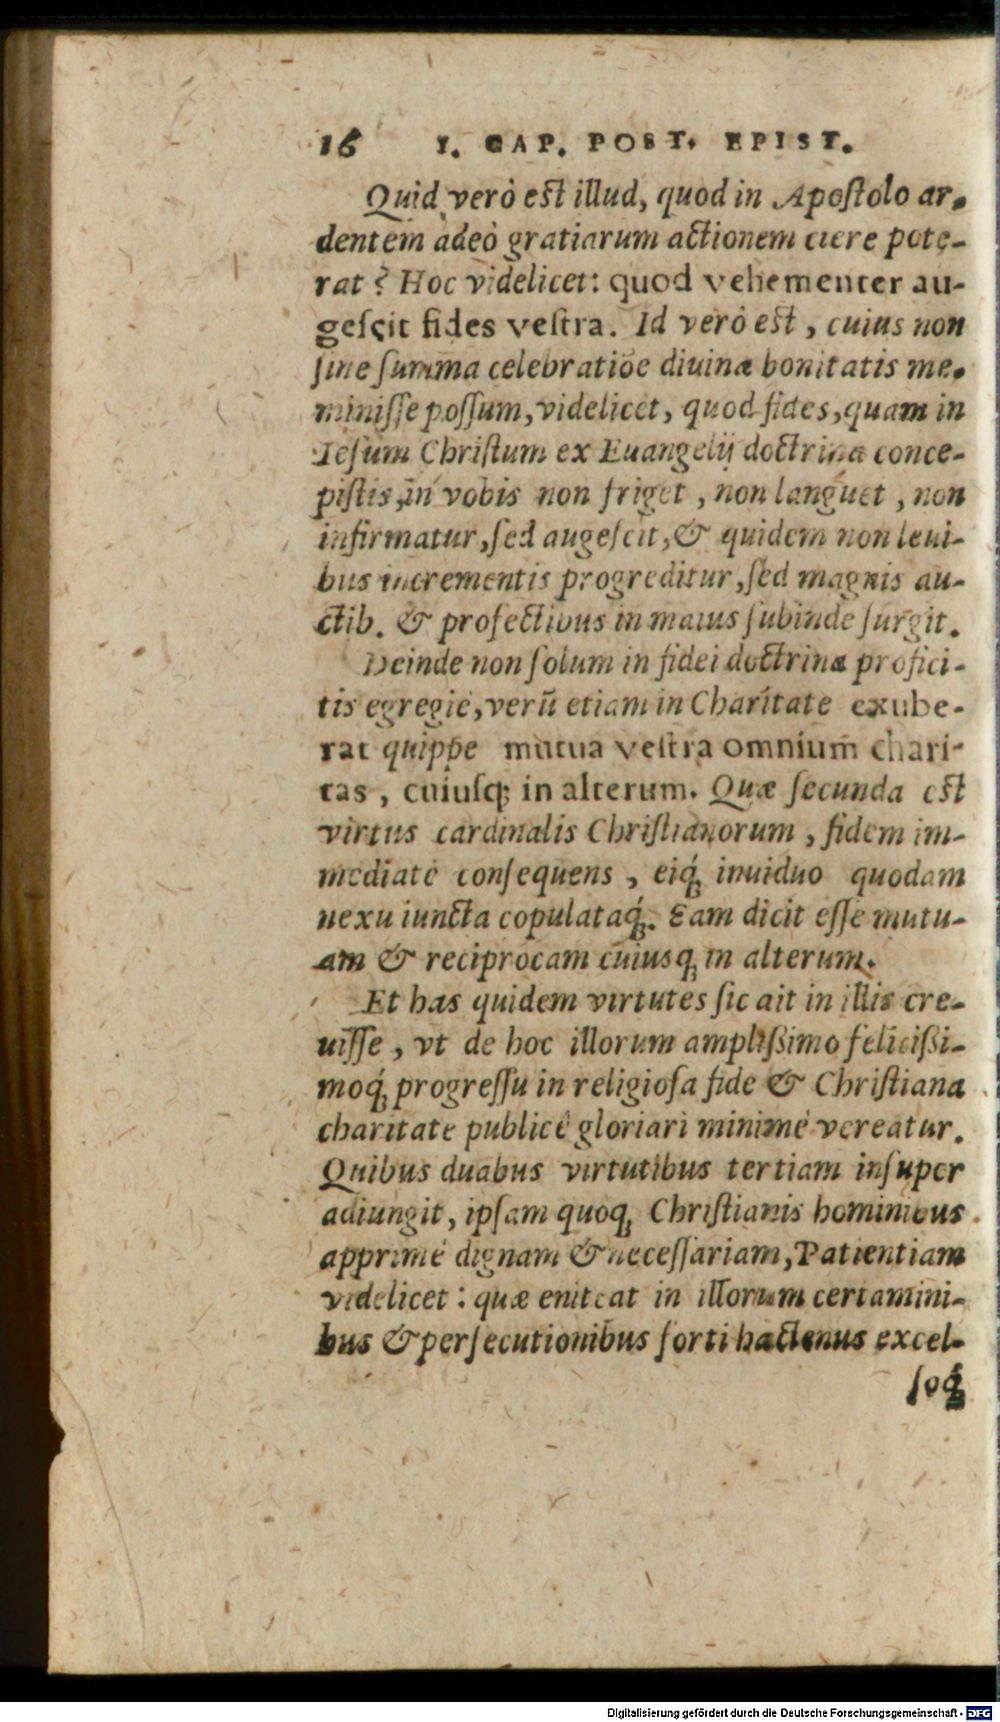 16 I. CAP. POST. EPIST.
Quid verò est illud, quod in Apostolo ar-
dentem adeò gratiarum actionem ciere pote-
rat? Hoc videlicet: quod vehementer au-
gescit fides vestra. Id verò est, cuius non
sine summa celebratiõe diuinæ bonitatis me-
minisse possum, videlicet, quod fides, quam in
Iesum Christum ex Euangelij doctrina conce-
pistis, in vobis non friget, non languet, non
infirmatur, sed augescit, & quidem non leui-
bus incrementis progreditur, sed magnis au-
ctib. & profectibus in maius subinde surgit.
Deinde non solum in fidei doctrina profici-
tis egregiè, verũ etiam in Charitate exube-
rat quippe mutua vestra omnium chari-
tas, cuiusq; in alterum. Quæ secunda est
virtus cardinalis Christianorum, fidem im-
mediatè consequens, eiq́; inuiduo quodam
nexu iuncta copulataq́;. Eam dicit esse mutu-
am & reciprocam cuiusq; in alterum.
Et has quidem virtutes sic ait in illis cre-
uisse, vt de hoc illorum amplißimo felicißi-
moq́; progressu in religiosa fide & Christiana
charitate publicè gloriari minimè vereatur.
Quibus duabus virtutibus tertiam insuper
adiungit, ipsam quoq; Christianis hominibus
apprimè dignam & necessariam, Patientiam
videlicet: quæ eniteat in illorum certamini-
bus & persecutionibus forti hactenus excel-
soq́;
Digitalisierung gefördert durch die Deutsche Forschungsgemeinschaft - DFG